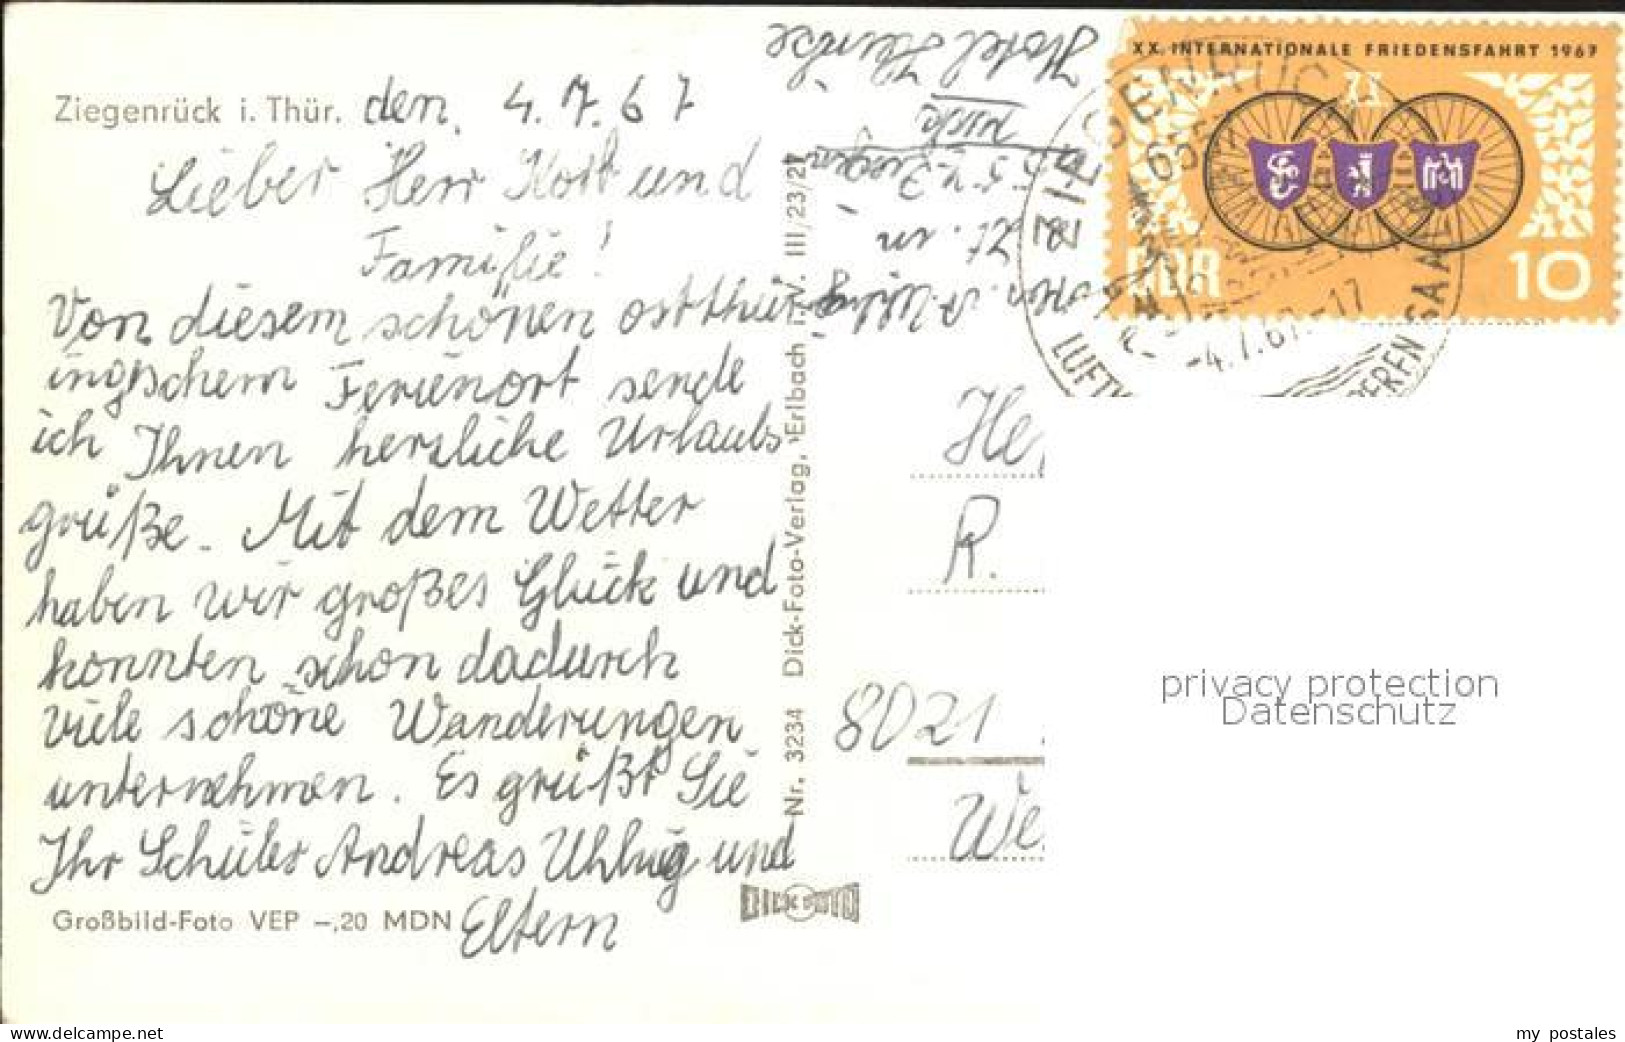 Ziegenrück i. Thür. den, 4. 7. 67
Lieber Herr Kolb und
Familie!
Von diesem schönen ostthür-
ingischem Ferienort sende
ich Ihnen herzliche Urlaubs
grüße. Mit dem Wetter
haben wir großes Glück und
konnten schon dadurch
viele schöne Wanderungen
unternehmen. Es grüßt Sie
Ihr Schüler Andreas Uhlig und
Eltern
Großbild-Foto VEP -,20 MDN
Nr. 3234 Dick-Foto-Verlag, Erlbach i. V. III/23/27
DICK FOTO
Abs. A. Uhlig
z. Zt. in
Hotel
XX. INTERNATIONALE FRIEDENSFAHRT 1967
XX
DDR 10
ZIEGENRÜCK
-4.7.67.-17
LUFTK
OBEREN SAA
He
R.
8021
We
privacy protection
Datenschutz
www.delcampe.net
my postales